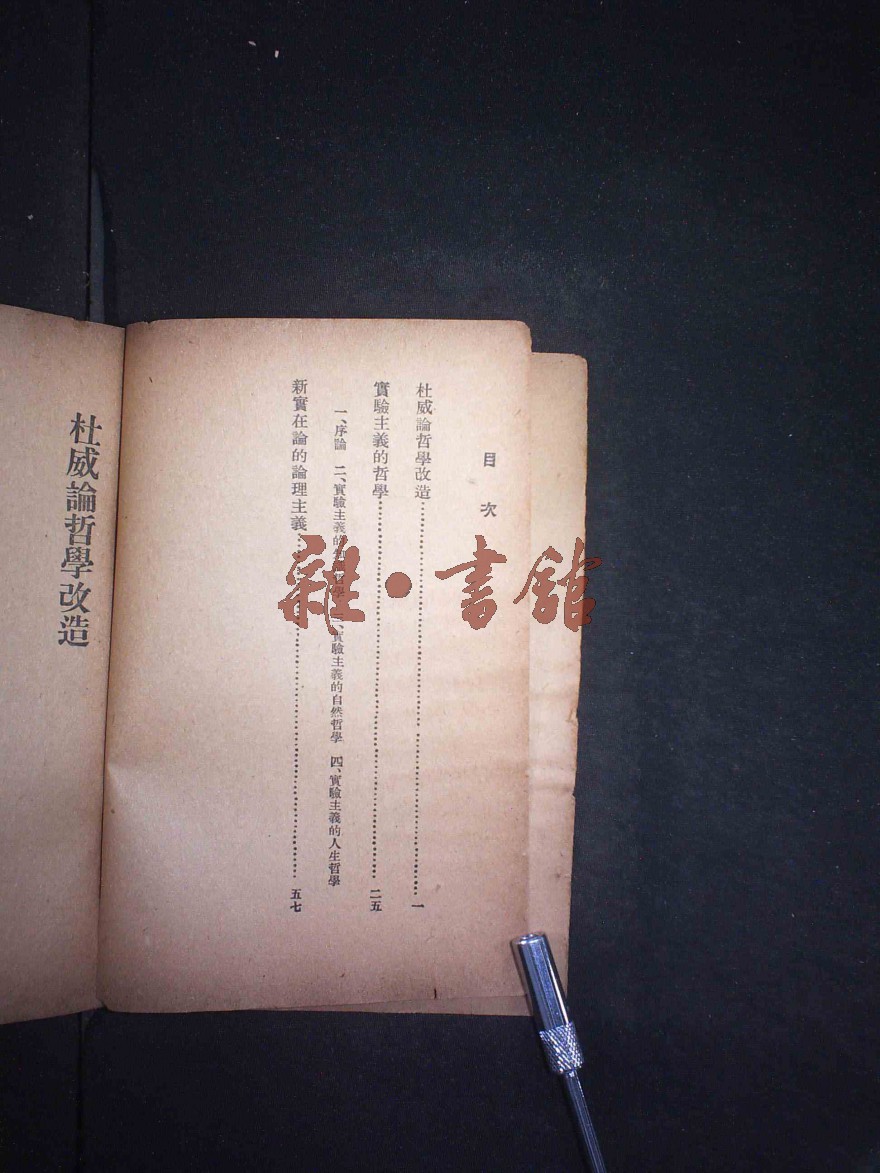 目次
杜威論哲學改造……一
實驗主義的哲學……二五
一、序論 二、實驗主義的 哲學 三、實驗主義的自然哲學 四、實驗主義的人生哲學
新實在論的論理主義……五七
杜威論哲學改造
雜·書舘